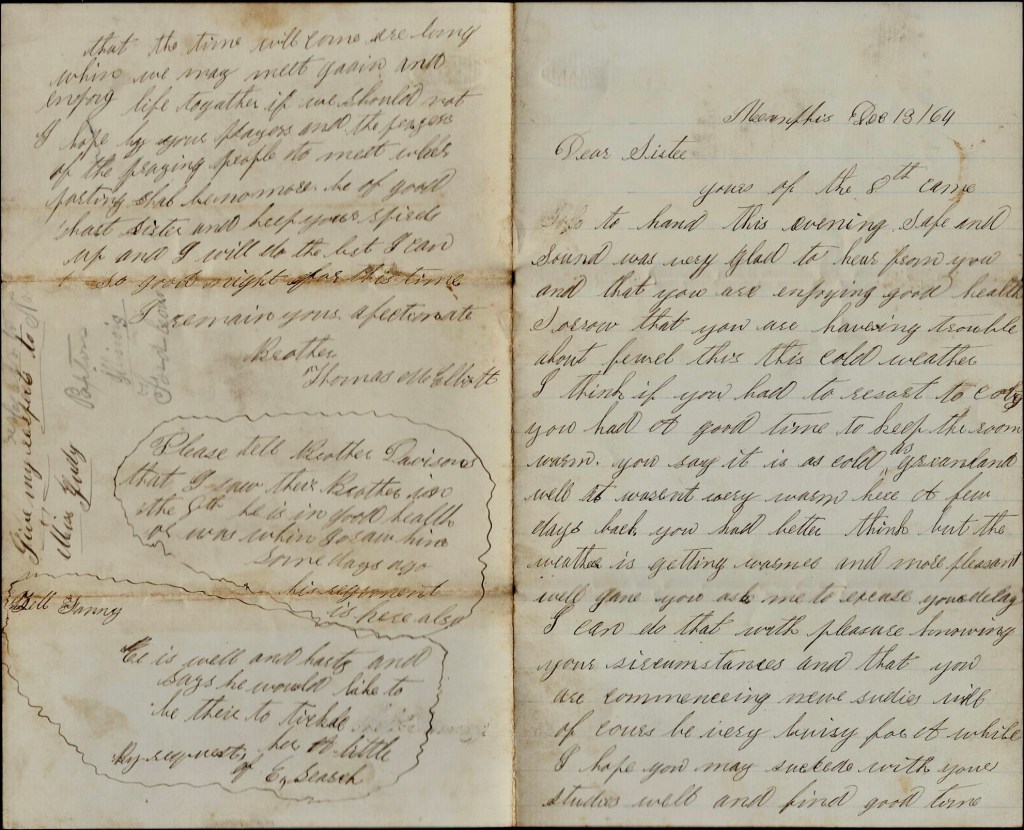 Memphis Dec 13/64
Dear Sister
yours of the 8th came
to hand this evening Safe and
Sound was very glad to hear from you
and that you are enjoying good health
Sorrow that you are haveing trouble
about fewel this this cold weather
I think if you had to resort to
you had A good time to keep the room
warm. you say it is as cold as greanland
well it wasent very warm here A few
days back you had better think but the
weather is getting warmer and more pleasant
well Jane you ask me to excuse your delay
I can do that with pleasure knowing
your sircumstances and that you
are commenceing newe sudies will
of cours be very buisy for A while
I hope you may suckede with your
studies well and find good time
that the time will come are long
whin we may meet gaain and
enjoy life togather if we should not
I hope by your prayers and the prayers
of the praying people to meet whear
parting shal be no more. be of good
Sister and keep your spirits
up and I will do the best I can
so good night for this time
I remain yours afectionate
Brother
Thomas McElliott
Please tell Brother Davisons
that I saw their Brother on
the 8th he is in good health
or was whin I saw him
some days ago
his regiment
is here also
Tell Fanny
E is well and harty and
says he would like to
be there to tickle
her A little
By request
of E, Search
Give my respects to
Miss Judy
Illinois